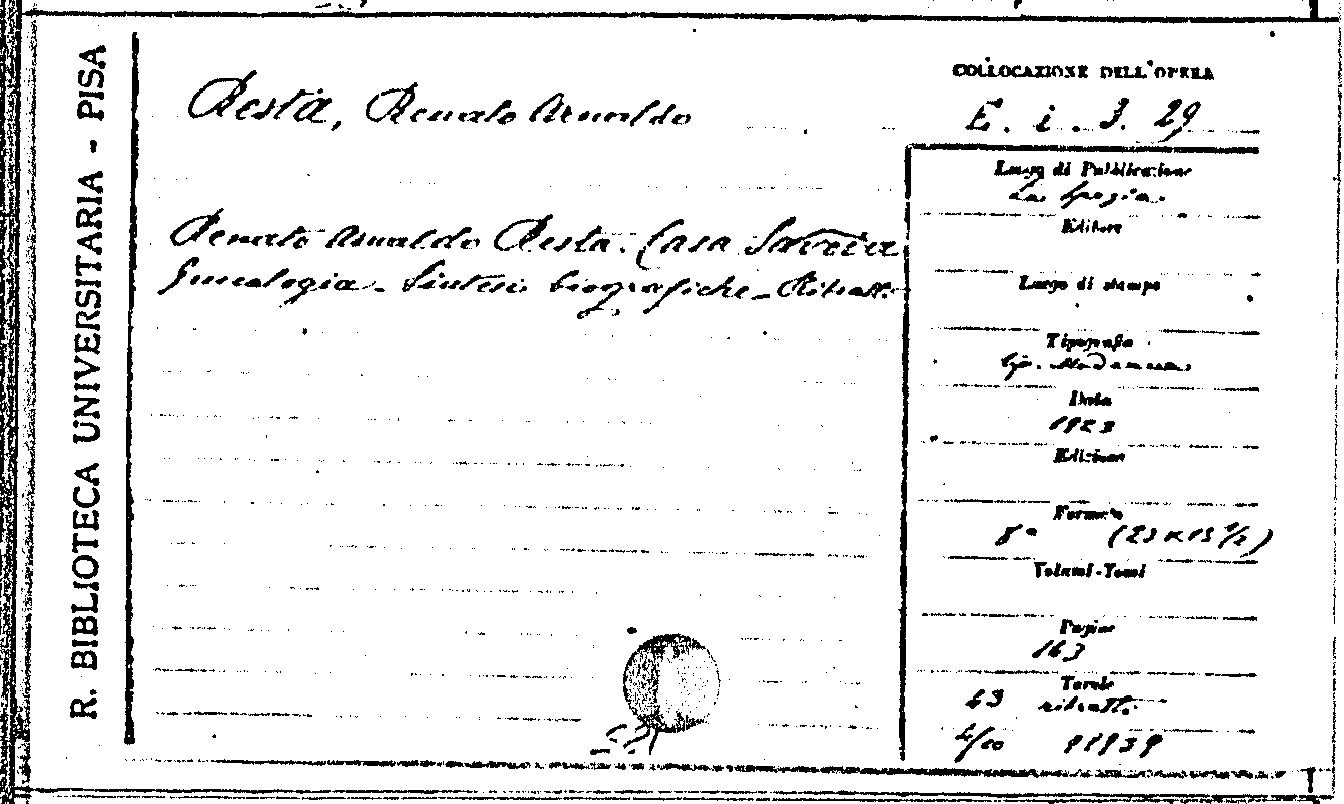 R. BIBLIOTECA UNIVERSITARIA - PISA
Resta, Renato Arnaldo
Renato Arnaldo Resta. Casa Savoia
Genealogia - Sintesi biografiche - Ritratti
COLLOCAZIONE DELL'OPERA
E. i. 3. 29
Luogo di Pubblicazione
La Spezia.
Editore
Luogo di stampa
Tipografia
tip. Modernissima
Data
1923
Edizione
Formato
8° (23 x 15 1/2)
Volumi-Tomi
Pagine
163
Tavole
43 ritratti
4/20 91939